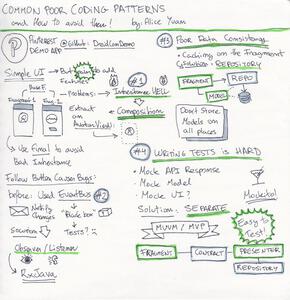 COMMON POOR CODING PATTERNS
and How to avoid them! by Alice Yuan
PINTEREST
DEMO APP
@Github: DroidConDemo
Simple UI
But
to add
features
Base F.
Problems:
#1
Inheritance HELL
Fragment 1
Frag. 2
Extract
an
AvatarView
Composition
Use Final to avoid
Bad Inheritance
Follow Button Causes Bugs:
before: Used EventBus
#2
Notify
changes
"Black box"
Solution
TESTS?
Observer / Listener
RxJava
#3
Poor Data Consistency
• Caching on the Fragment
Solution: REPOSITORY
FRAGMENT
REPO
MODEL
Don't Store
Models on
all places
#4
WRITING TESTS is HARD
• Mock API Response
• Mock Model
• Mock UI?
Mockito!
Solution: SEPARATE
MVVM / MVP
Easy to
Test!
FRAGMENT
CONTRACT
PRESENTER
REPOSITORY